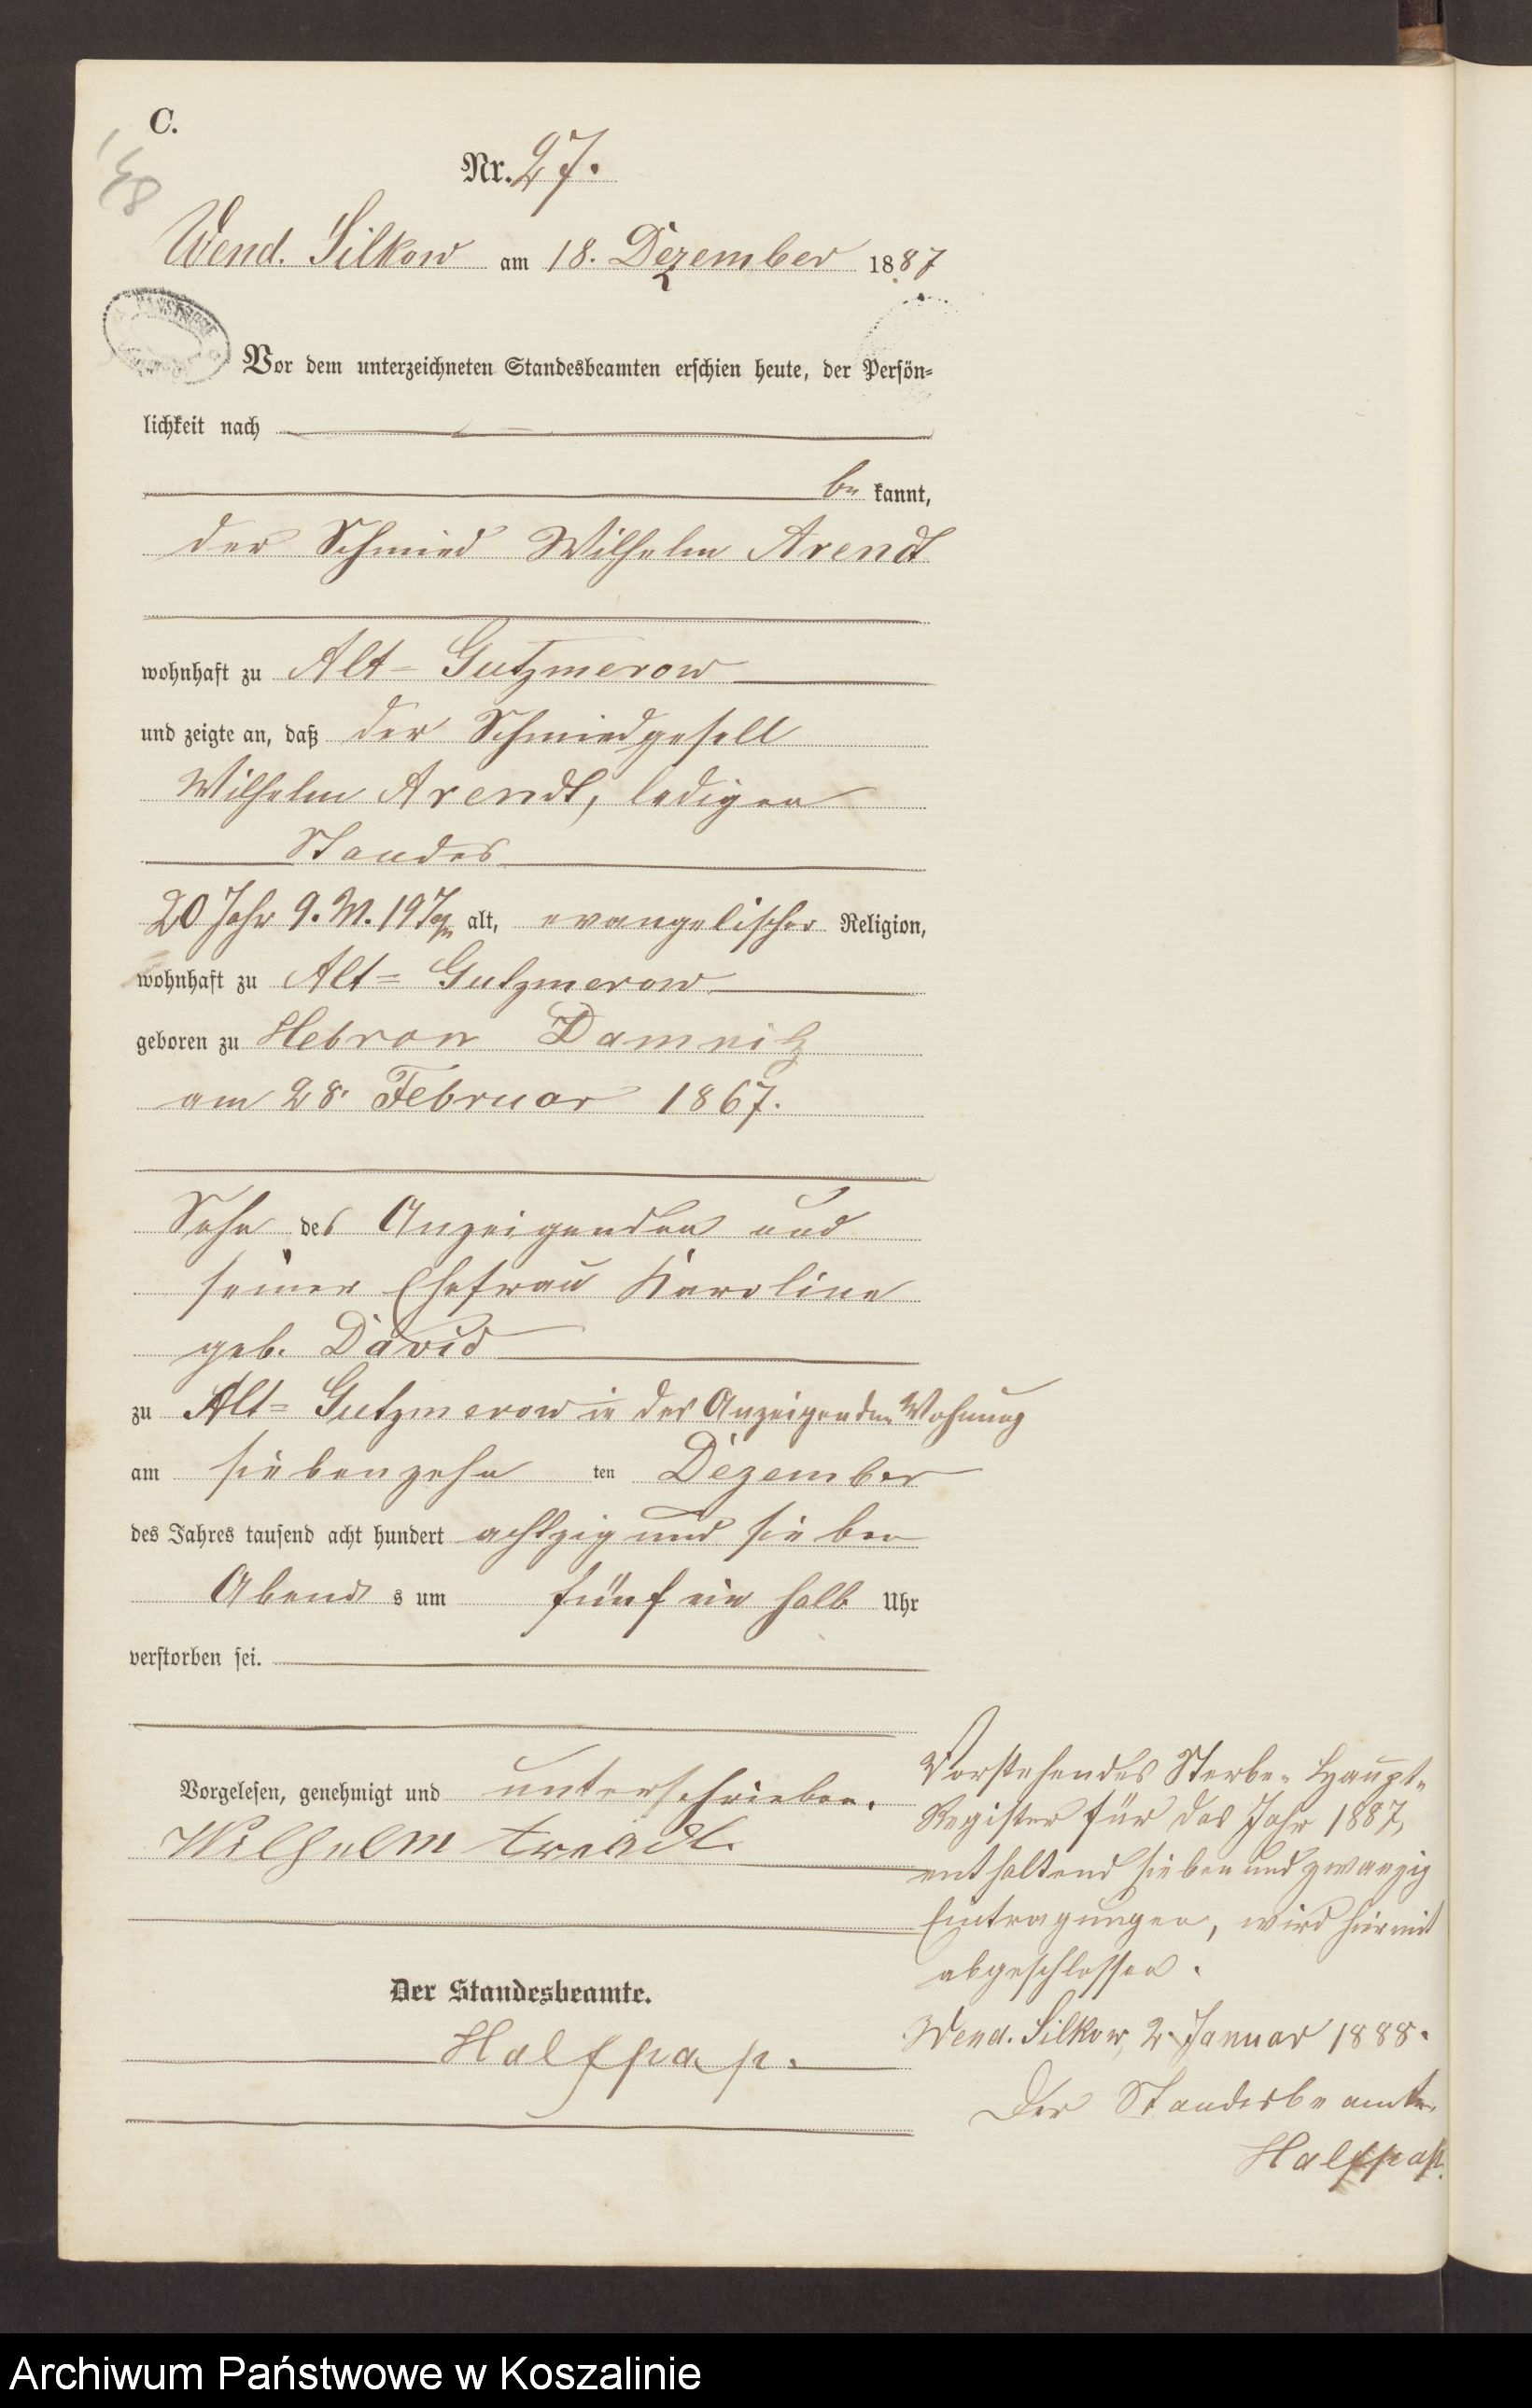 C.
48
Nr. 27.
Wend. Silkow am 18. Dezember 1887
Vor dem unterzeichneten Standesbeamten erschien heute, der Persön-
lichkeit nach
be kannt,
der Schmied Wilhelm Arendt
wohnhaft zu Alt-Gutzmerow
und zeigte an, daß der Schmiedgesell
Wilhelm Arendt, ledigen
Standes
20 Jahr 9. M. 19 Tgn alt, evangelischer Religion,
wohnhaft zu Alt-Gutzmerow
geboren zu Hebron Damnitz
am 28. Februar 1867.
Sohn des Anzeigenden und
seiner Ehefrau Karoline
geb. David
zu Alt-Gutzmerow in des Anzeigenden Wohnung
am siebenzehn ten Dezember
des Jahres tausend acht hundert achtzig und sieben
Abend s um fünf ein halb Uhr
verstorben sei.
Vorgelesen, genehmigt und unterschrieben.
Wilhelm Arendt.
Der Standesbeamte.
Halfpap.
Vorstehendes Sterbe-Haupt-
Register für das Jahr 1887,
enthaltend sieben und zwanzig
Eintragungen, wird hiermit
abgeschlossen.
Wend. Silkow, 2. Januar 1888.
Der Standesbeamte.
Halfpap.
Archiwum Państwowe w Koszalinie